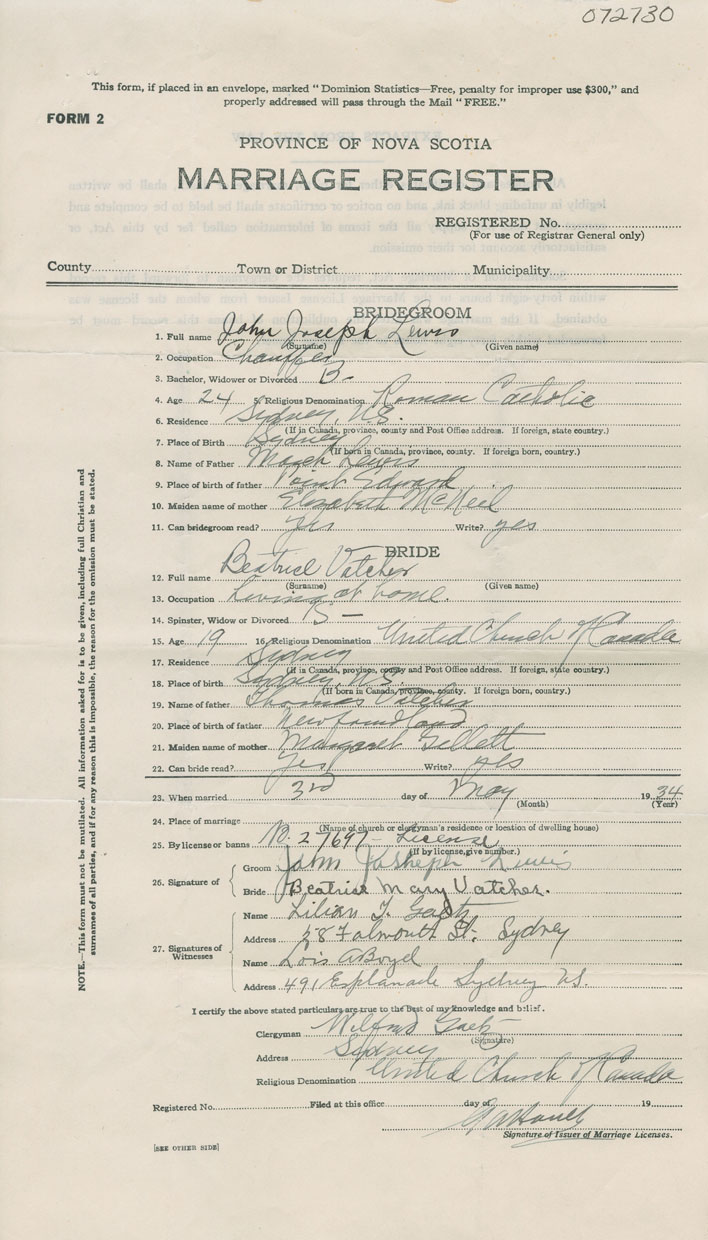 072730
This form, if placed in an envelope, marked "Dominion Statistics—Free, penalty for improper use $300," and
properly addressed will pass through the Mail "FREE."
FORM 2
PROVINCE OF NOVA SCOTIA
MARRIAGE REGISTER
REGISTERED No.
(For use of Registrar General only)
County Town or District Municipality
BRIDEGROOM
1. Full name John Joseph Lewis
(Surname) (Given name)
2. Occupation Chauffer
3. Bachelor, Widower or Divorced B-
4. Age 24 5. Religious Denomination Roman Catholic
6. Residence Sydney, N.S.
(If in Canada, province, county and Post Office address. If foreign, state country.)
7. Place of Birth Sydney
(If born in Canada, province, county. If foreign born, country.)
8. Name of Father Lewis
9. Place of birth of father Point Edward
10. Maiden name of mother Elizabeth McNeil
11. Can bridegroom read? yes Write? yes
BRIDE
12. Full name Beatrice Vatcher
(Surname) (Given name)
13. Occupation Living at home.
14. Spinster, Widow or Divorced S—
15. Age 19 16. Religious Denomination United Church of Canada
17. Residence Sydney
(If in Canada, province, county and Post Office address. If foreign, state country.)
18. Place of birth Sydney N.S.
(If born in Canada, province, county. If foreign born, country.)
19. Name of father Thomas Vatcher
20. Place of birth of father Newfoundland
21. Maiden name of mother Margaret Gillett
22. Can bride read? yes Write? yes
23. When married 3rd day of May 1934
(Month) (Year)
24. Place of marriage
(Name of church or clergyman's residence or location of dwelling house)
25. By license or banns 27697 - License
(If by license, give number.)
26. Signature of
Groom John Josheph Lewis
Bride Beatrice Mary Vatcher.
27. Signatures of Witnesses
Name Lilian T. Gaetz
Address 58 Falmouth St. Sydney
Name Lois A Boyd
Address 491 Esplanade Sydney N.S.
I certify the above stated particulars are true to the best of my knowledge and belief.
Clergyman Wilfred Gaetz
(Signature)
Address Sydney
Religious Denomination United Church of Canada
Registered No. Filed at this office day of 19
Signature of Issuer of Marriage Licenses.
[SEE OTHER SIDE]
NOTE.—This form must not be mutilated. All information asked for is to be given, including full Christian and
surnames of all parties, and if for any reason this is impossible, the reason for the omission must be stated.